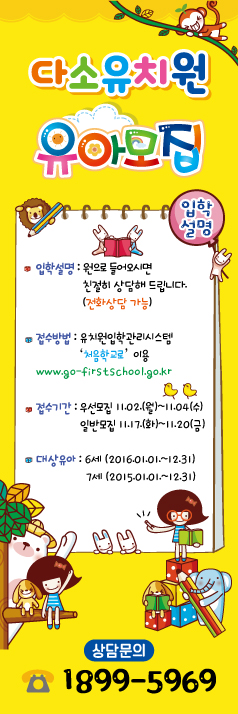 다소유치원
유아모집
입학
설명
입학설명 : 원으로 들어오시면
친절히 상담해 드립니다.
(전화상담 가능)
접수방법 : 유치원입학관리시스템
'처음학교로' 이용
www.go-firstschool.go.kr
접수기간 : 우선모집 11.02.(월)~11.04(수)
일반모집 11.17.(화)~11.20(금)
대상유아 : 6세 (2016.01.01.~12.31)
7세 (2015.01.01.~12.31)
상담문의
1899-5969